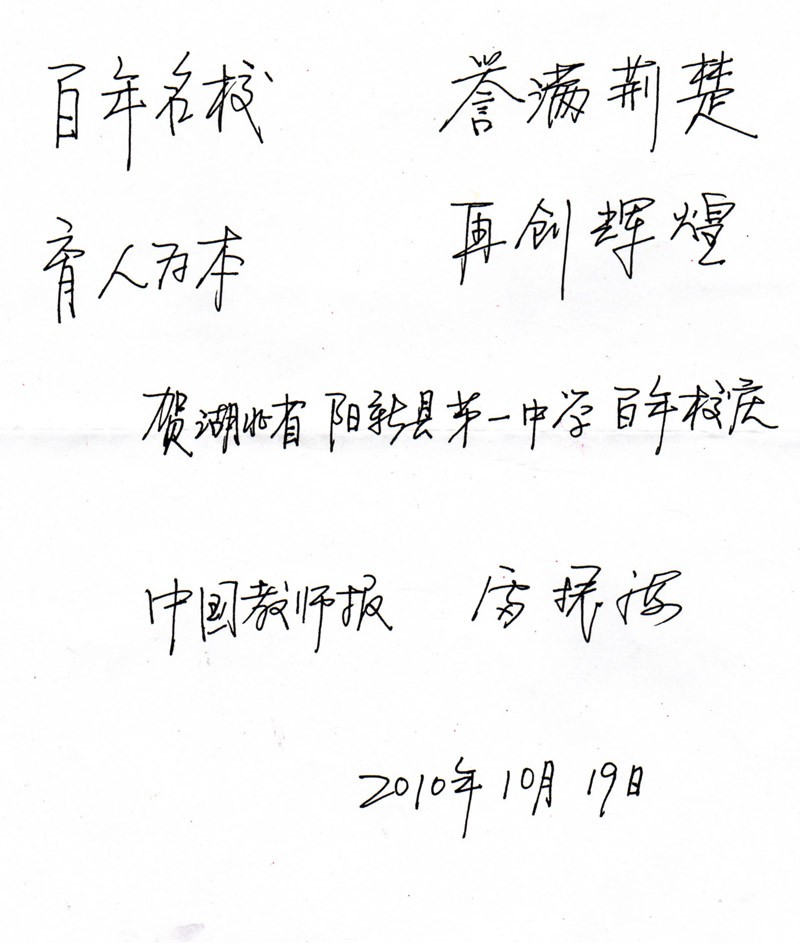 百年名校 誉满荆楚
育人为本 再创辉煌
贺湖北省阳新县第一中学百年校庆
中国教师报 雷振海
2010年10月19日